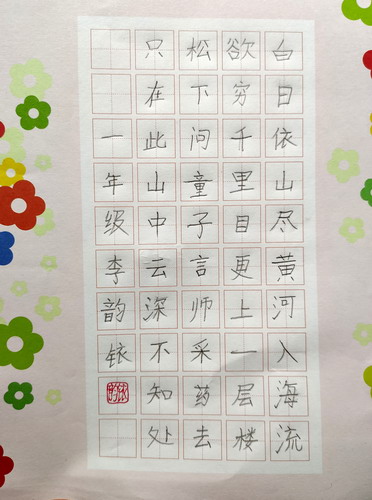 白日依山尽黄河入海流
欲穷千里目更上一层楼
松下问童子言师采药去
只在此山中云深不知处
一年级李韵铱